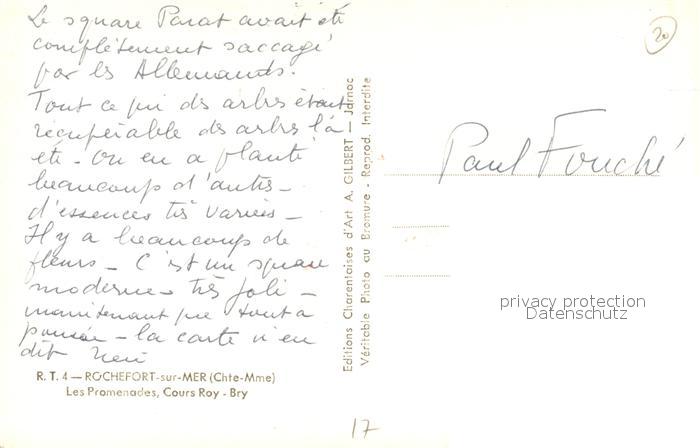 Le square Parat avait été
complètement saccagé
par les Allemands.
Tout ce qui des arbres était
récupérable des arbres l'a
été - On en a planté
beaucoup d'autres -
d'essences très variées -
Il y a beaucoup de
fleurs - C'est un square
moderne - très joli -
maintenant que tout a
poussé - la carte n'en
dit rien
R. T. 4 — ROCHEFORT-sur-MER (Chte-Mme)
Les Promenades, Cours Roy - Bry
Editions Charentaises d'Art A. GILBERT - Jarnac
Véritable Photo au Bromure - Reprod. Interdite
20
Paul Fouché
privacy protection
Datenschutz
17